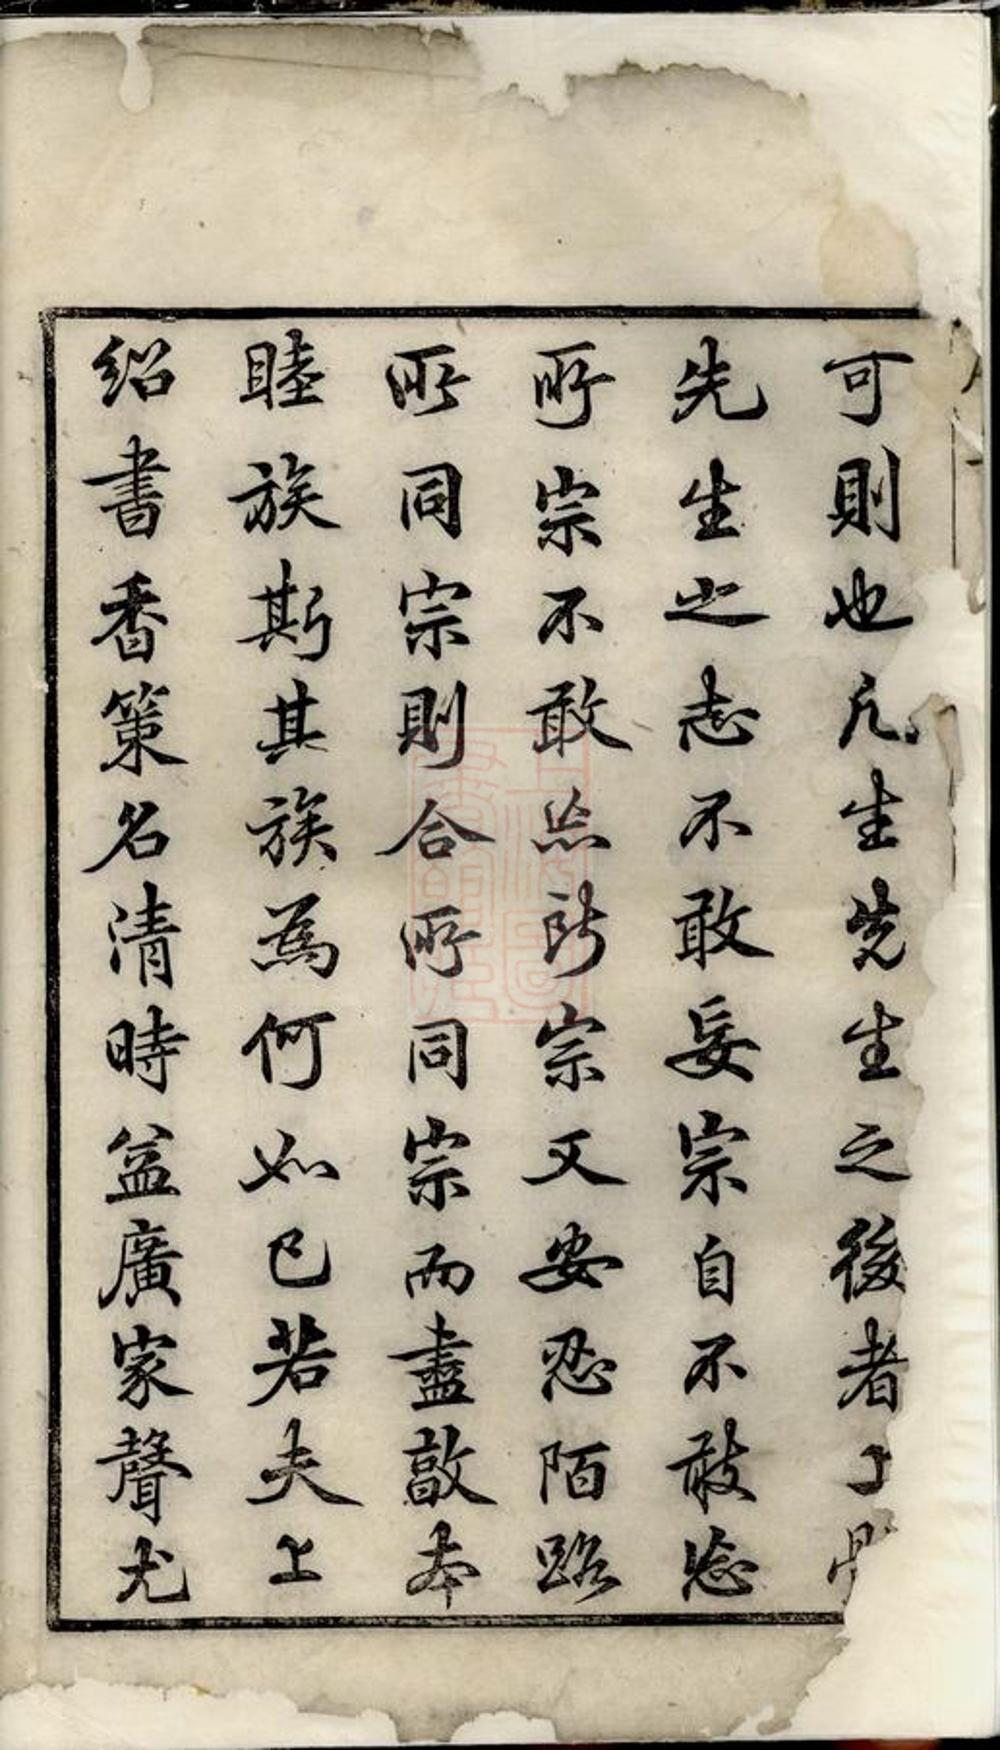 可則也凡生先生之後者
先生之志不敢妄宗自不敢忘
所宗不敢忘所宗又安忍陌路
所同宗則合所同宗而盡敦本
睦族斯其族為何如已若夫上
紹書香策名清時益廣家聲尤